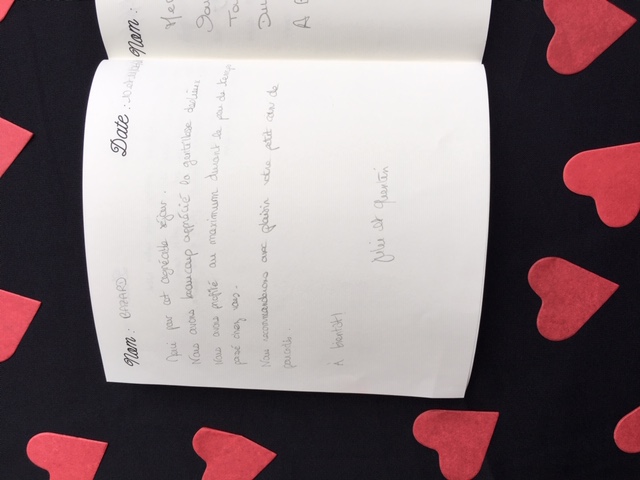 Nom : BIZARD
Date :
Merci par cet agréable séjour.
Nous avons beaucoup apprécié la gentillesse des lieux
Nous avons profité au maximum durant le peu de temps
passé chez vous.
Nous recommandons avec plaisir votre petit coin de
paradis.
A bientôt!
Julie et Quentin
Nom :